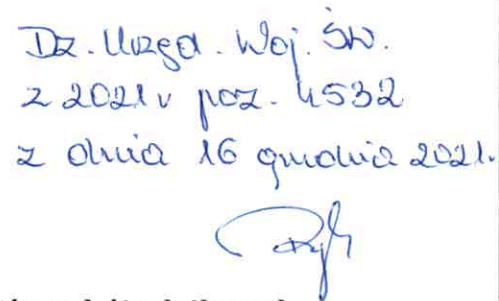 Dz. Urzęd. Woj. Św.
z 2021 r poz. 4532
z dnia 16 grudnia 2021.